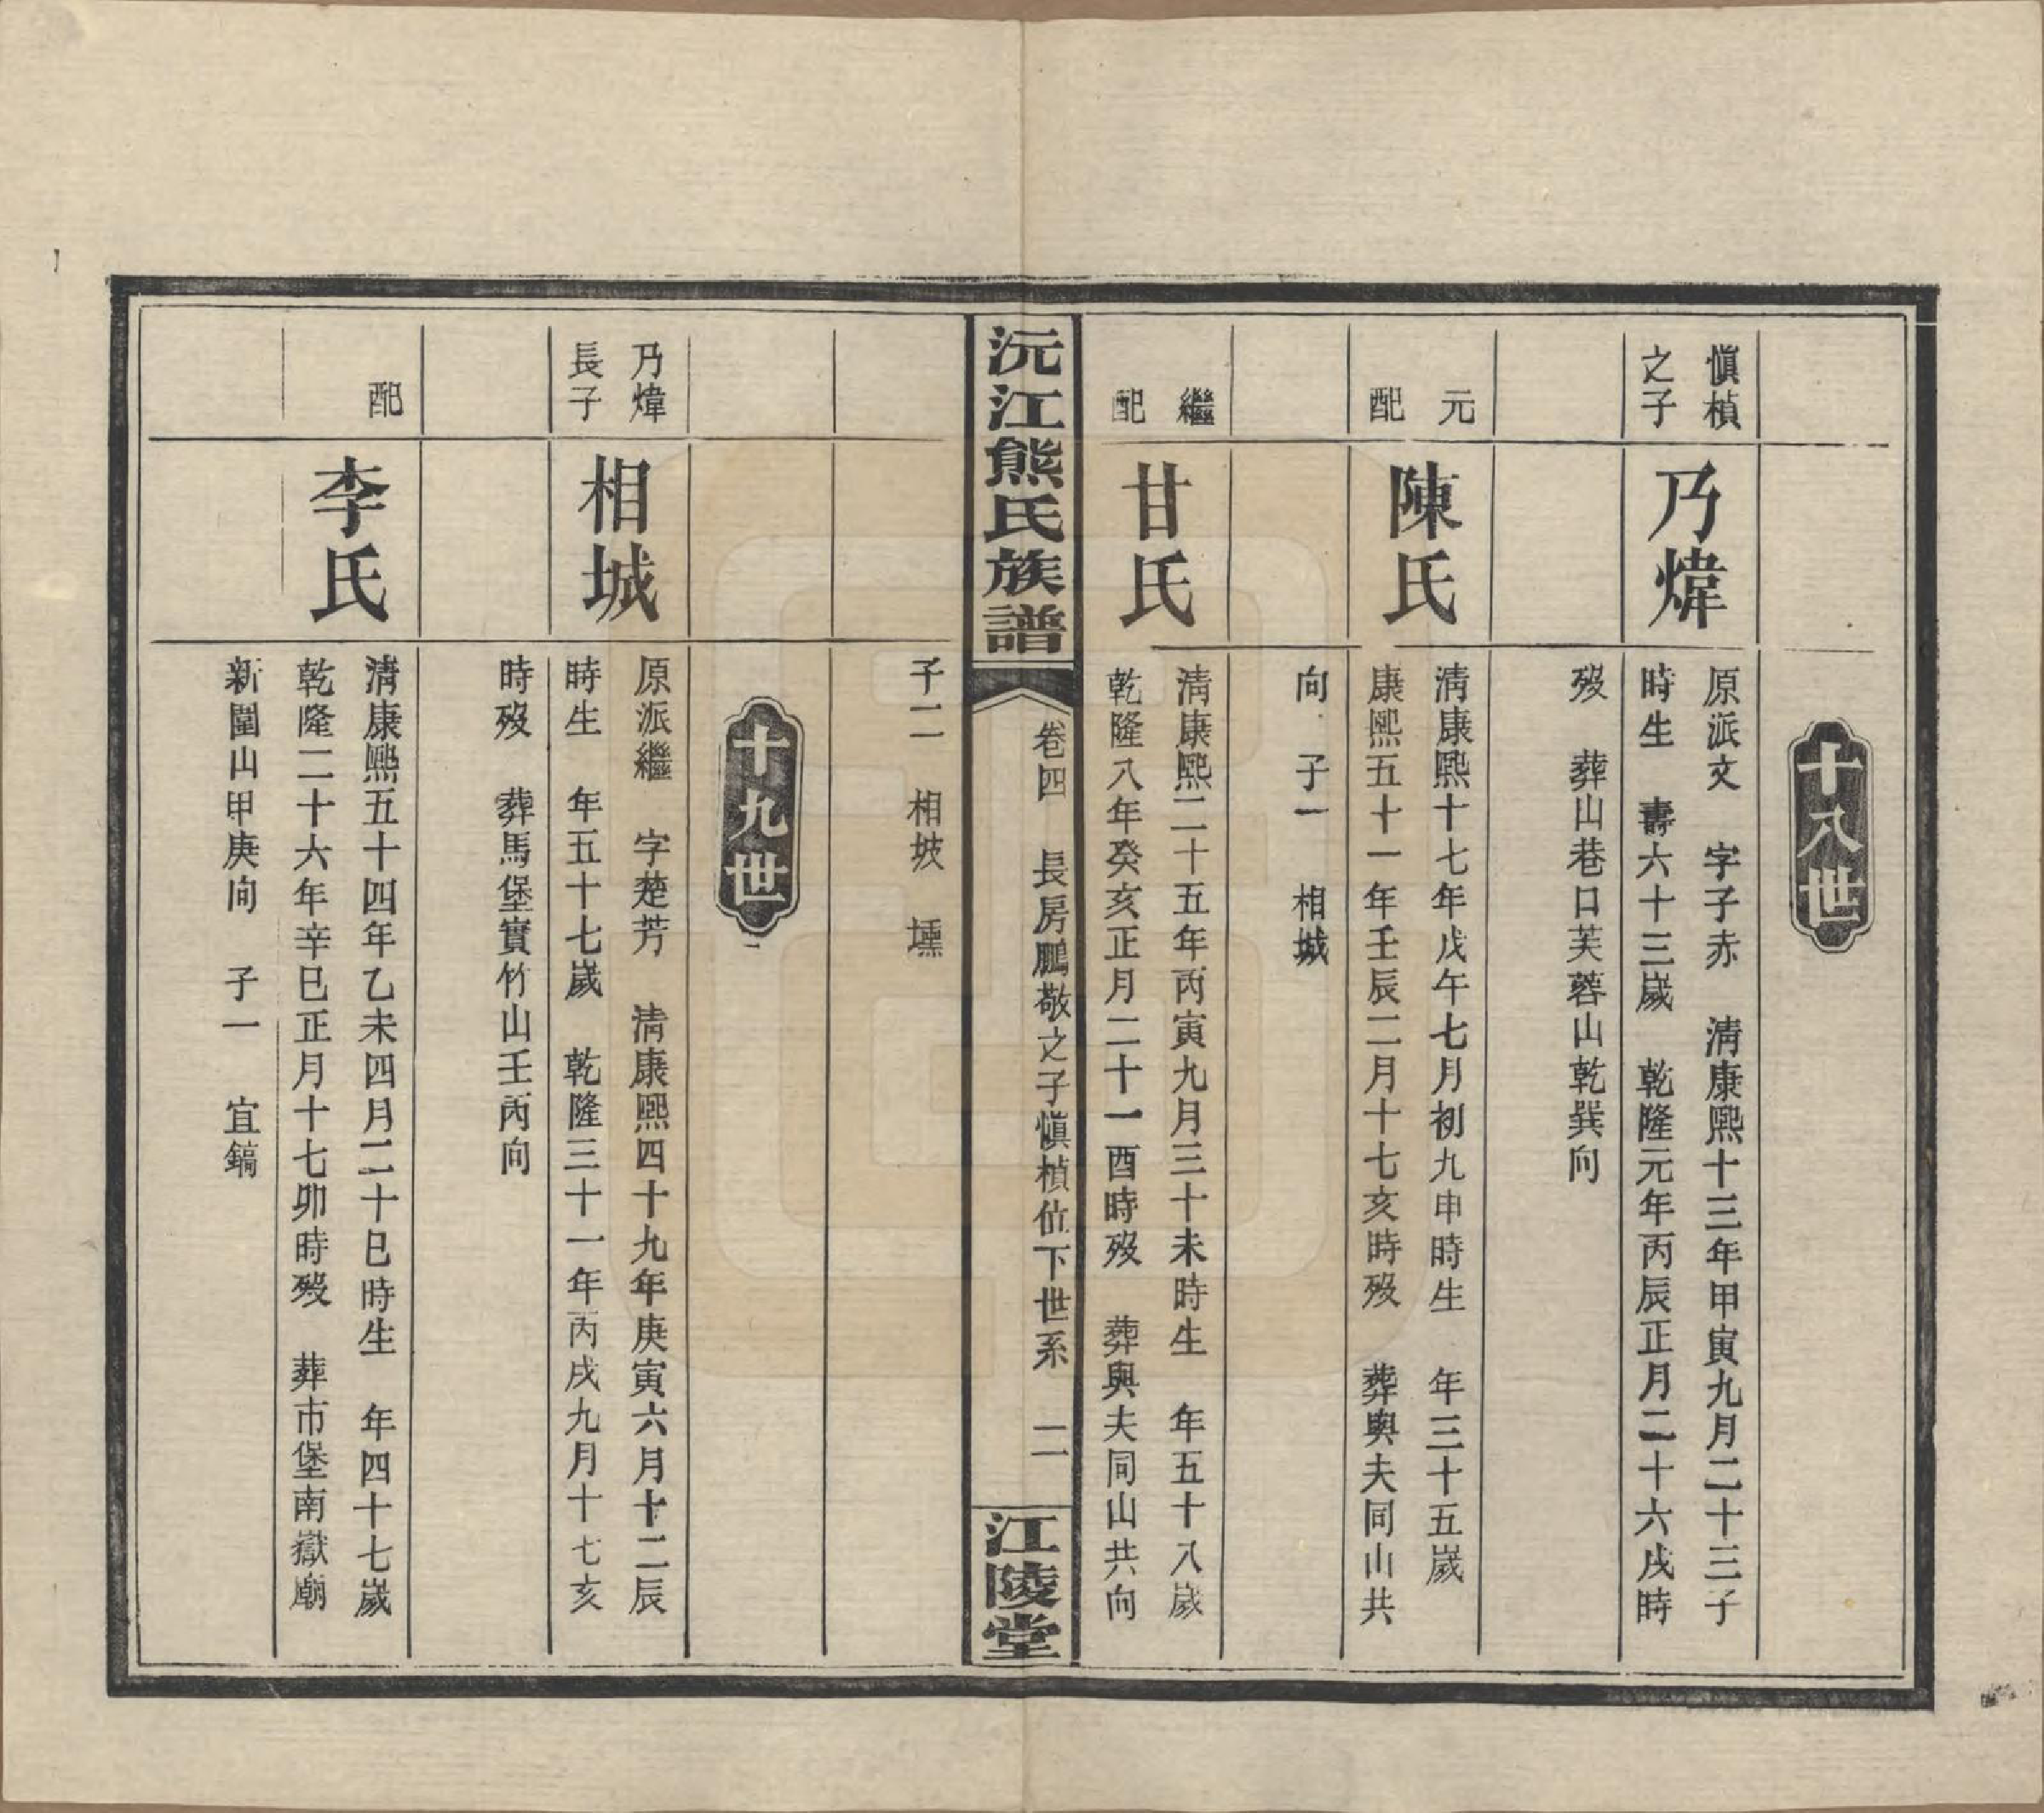 十八世
愼楨
之子
乃煒
原派文　字子赤　淸康熙十三年甲寅九月二十三子
時生　壽六十三歲　乾隆元年丙辰正月二十六戌時
歿　葬山巷口芙蓉山乾巽向
元
配
陳氏
淸康熙十七年戊午七月初九申時生　年三十五歲
康熙五十一年壬辰二月十七亥時歿　葬與夫同山共
向　子一　相城
繼
配
甘氏
淸康熙二十五年丙寅九月三十未時生　年五十八歲
乾隆八年癸亥正月二十一酉時歿　葬與夫同山共向
沅江熊氏族譜
卷四　長房鵬敬之子愼楨位下世系　二
江陵堂
子二　相坡　壎
十九世
乃煒
長子
相城
原派繼　字楚芳　淸康熙四十九年庚寅六月十二辰
時生　年五十七歲　乾隆三十一年丙戌九月十七亥
時歿　葬馬堡實竹山壬丙向
配
李氏
淸康熙五十四年乙未四月二十巳時生　年四十七歲
乾隆二十六年辛巳正月十七卯時歿　葬市堡南嶽廟
新圍山甲庚向　子一　宜鎬